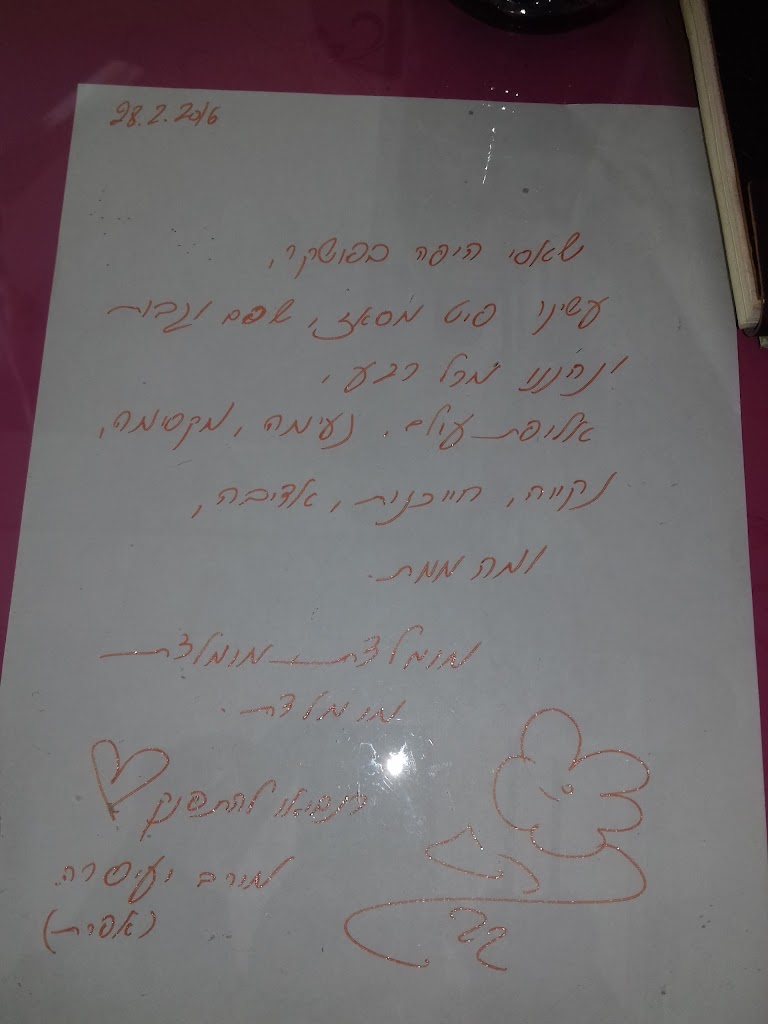 28.2.2016
שאסי היפה בפושקר,
עשינו פיט מסאז', שפם וגבות
ונהננו מכל רגע,
אליפת עולם. נעימה, מקסימה,
נקייה, חייכנית, אדיבה,
ומהממת.
מומלצת מומלצת
מומלצת.
להתפנק
מורב
(אפרת)